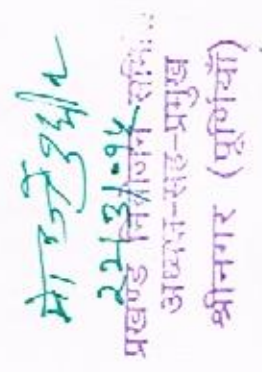 22/3/14
प्रखण्ड नियोजन समि...
अध्यक्ष-सह-प्रमुख
श्रीनगर (पूर्णियाँ)